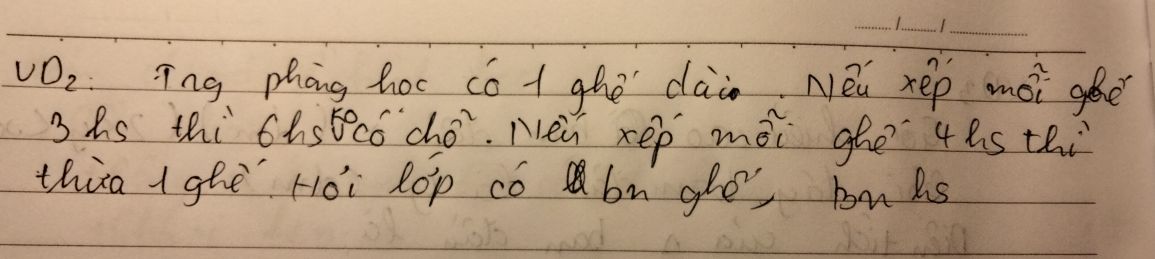 VD2: Tng phòng học có 1 ghế dài. Nếu xếp mỗi ghế
3 hs thì 6hs ko có chỗ. Nếu xếp mỗi ghế 4 hs thì
thừa 1 ghế. Hỏi lớp có bn ghế, bn hs